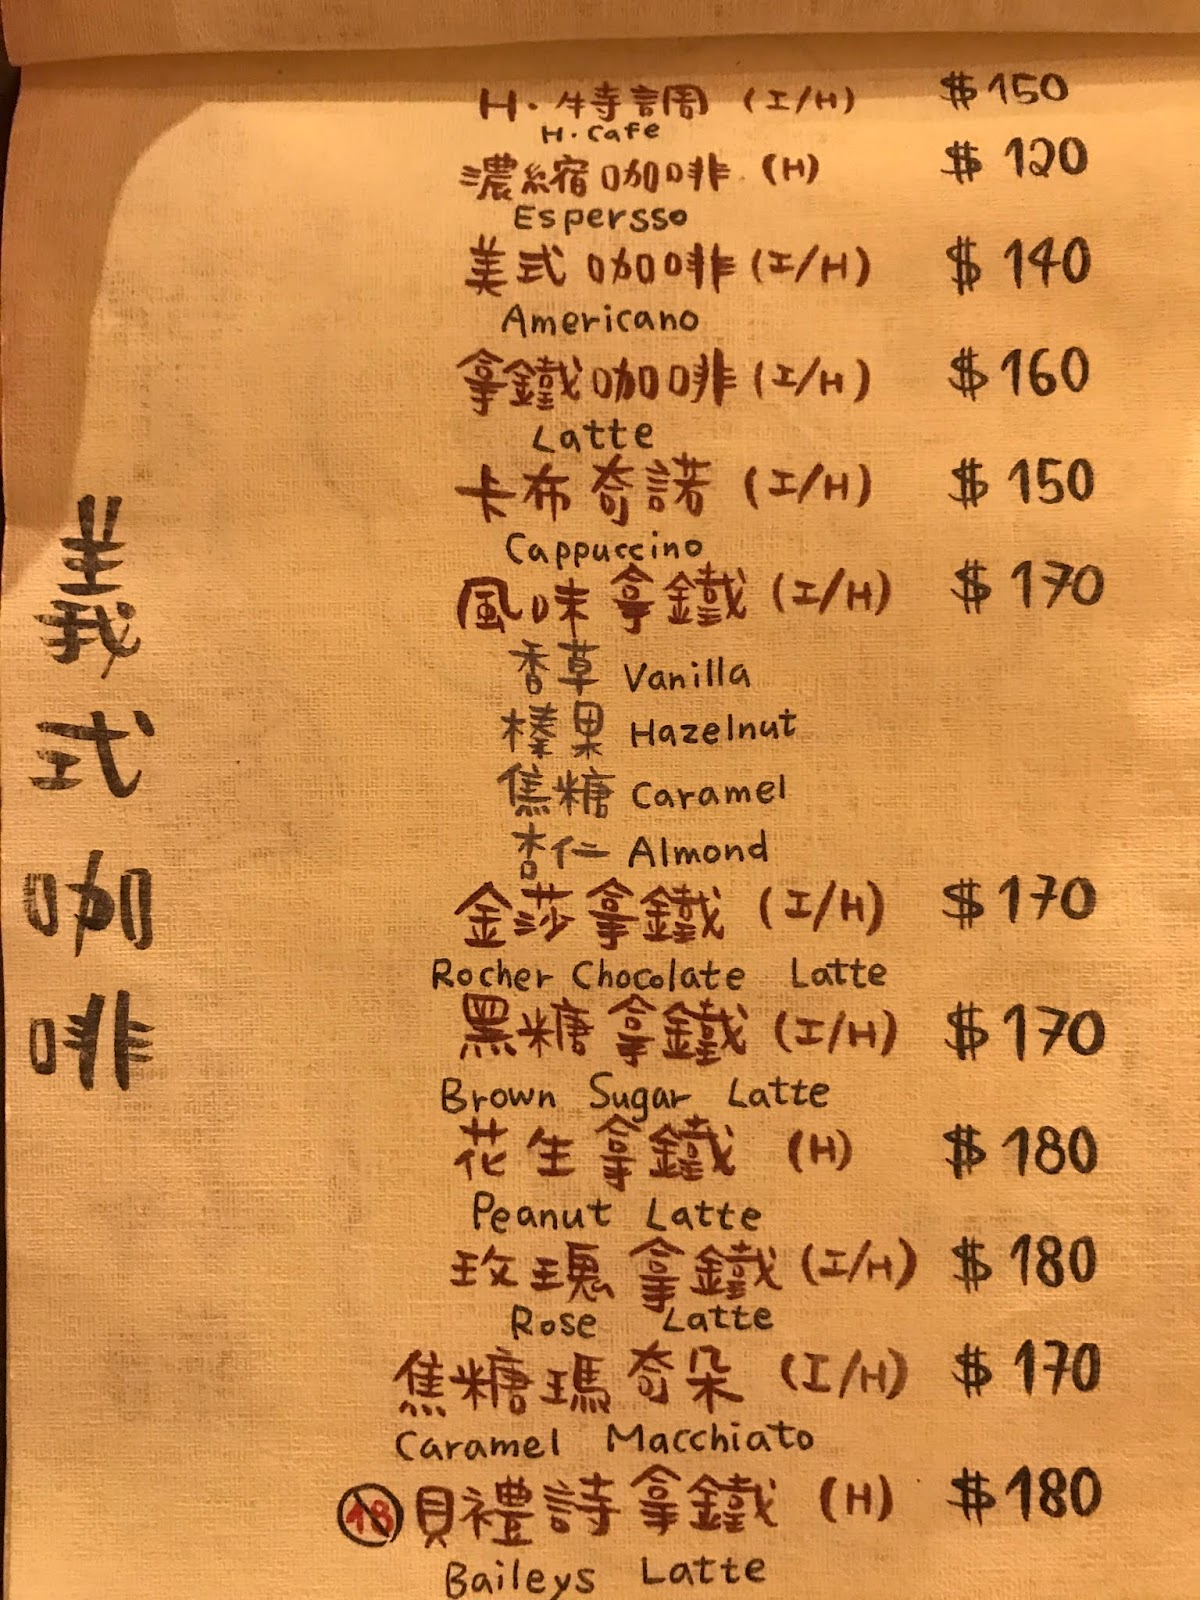 義式咖啡
H.特調 (I/H) $150
H.Cafe
濃縮咖啡 (H) $120
Espersso
美式咖啡 (I/H) $140
Americano
拿鐵咖啡 (I/H) $160
Latte
卡布奇諾 (I/H) $150
Cappuccino
風味拿鐵 (I/H) $170
香草 Vanilla
榛果 Hazelnut
焦糖 Caramel
杏仁 Almond
金莎拿鐵 (I/H) $170
Rocher Chocolate Latte
黑糖拿鐵 (I/H) $170
Brown Sugar Latte
花生拿鐵 (H) $180
Peanut Latte
玫瑰拿鐵 (I/H) $180
Rose Latte
焦糖瑪奇朵 (I/H) $170
Caramel Macchiato
18 貝禮詩拿鐵 (H) $180
Baileys Latte